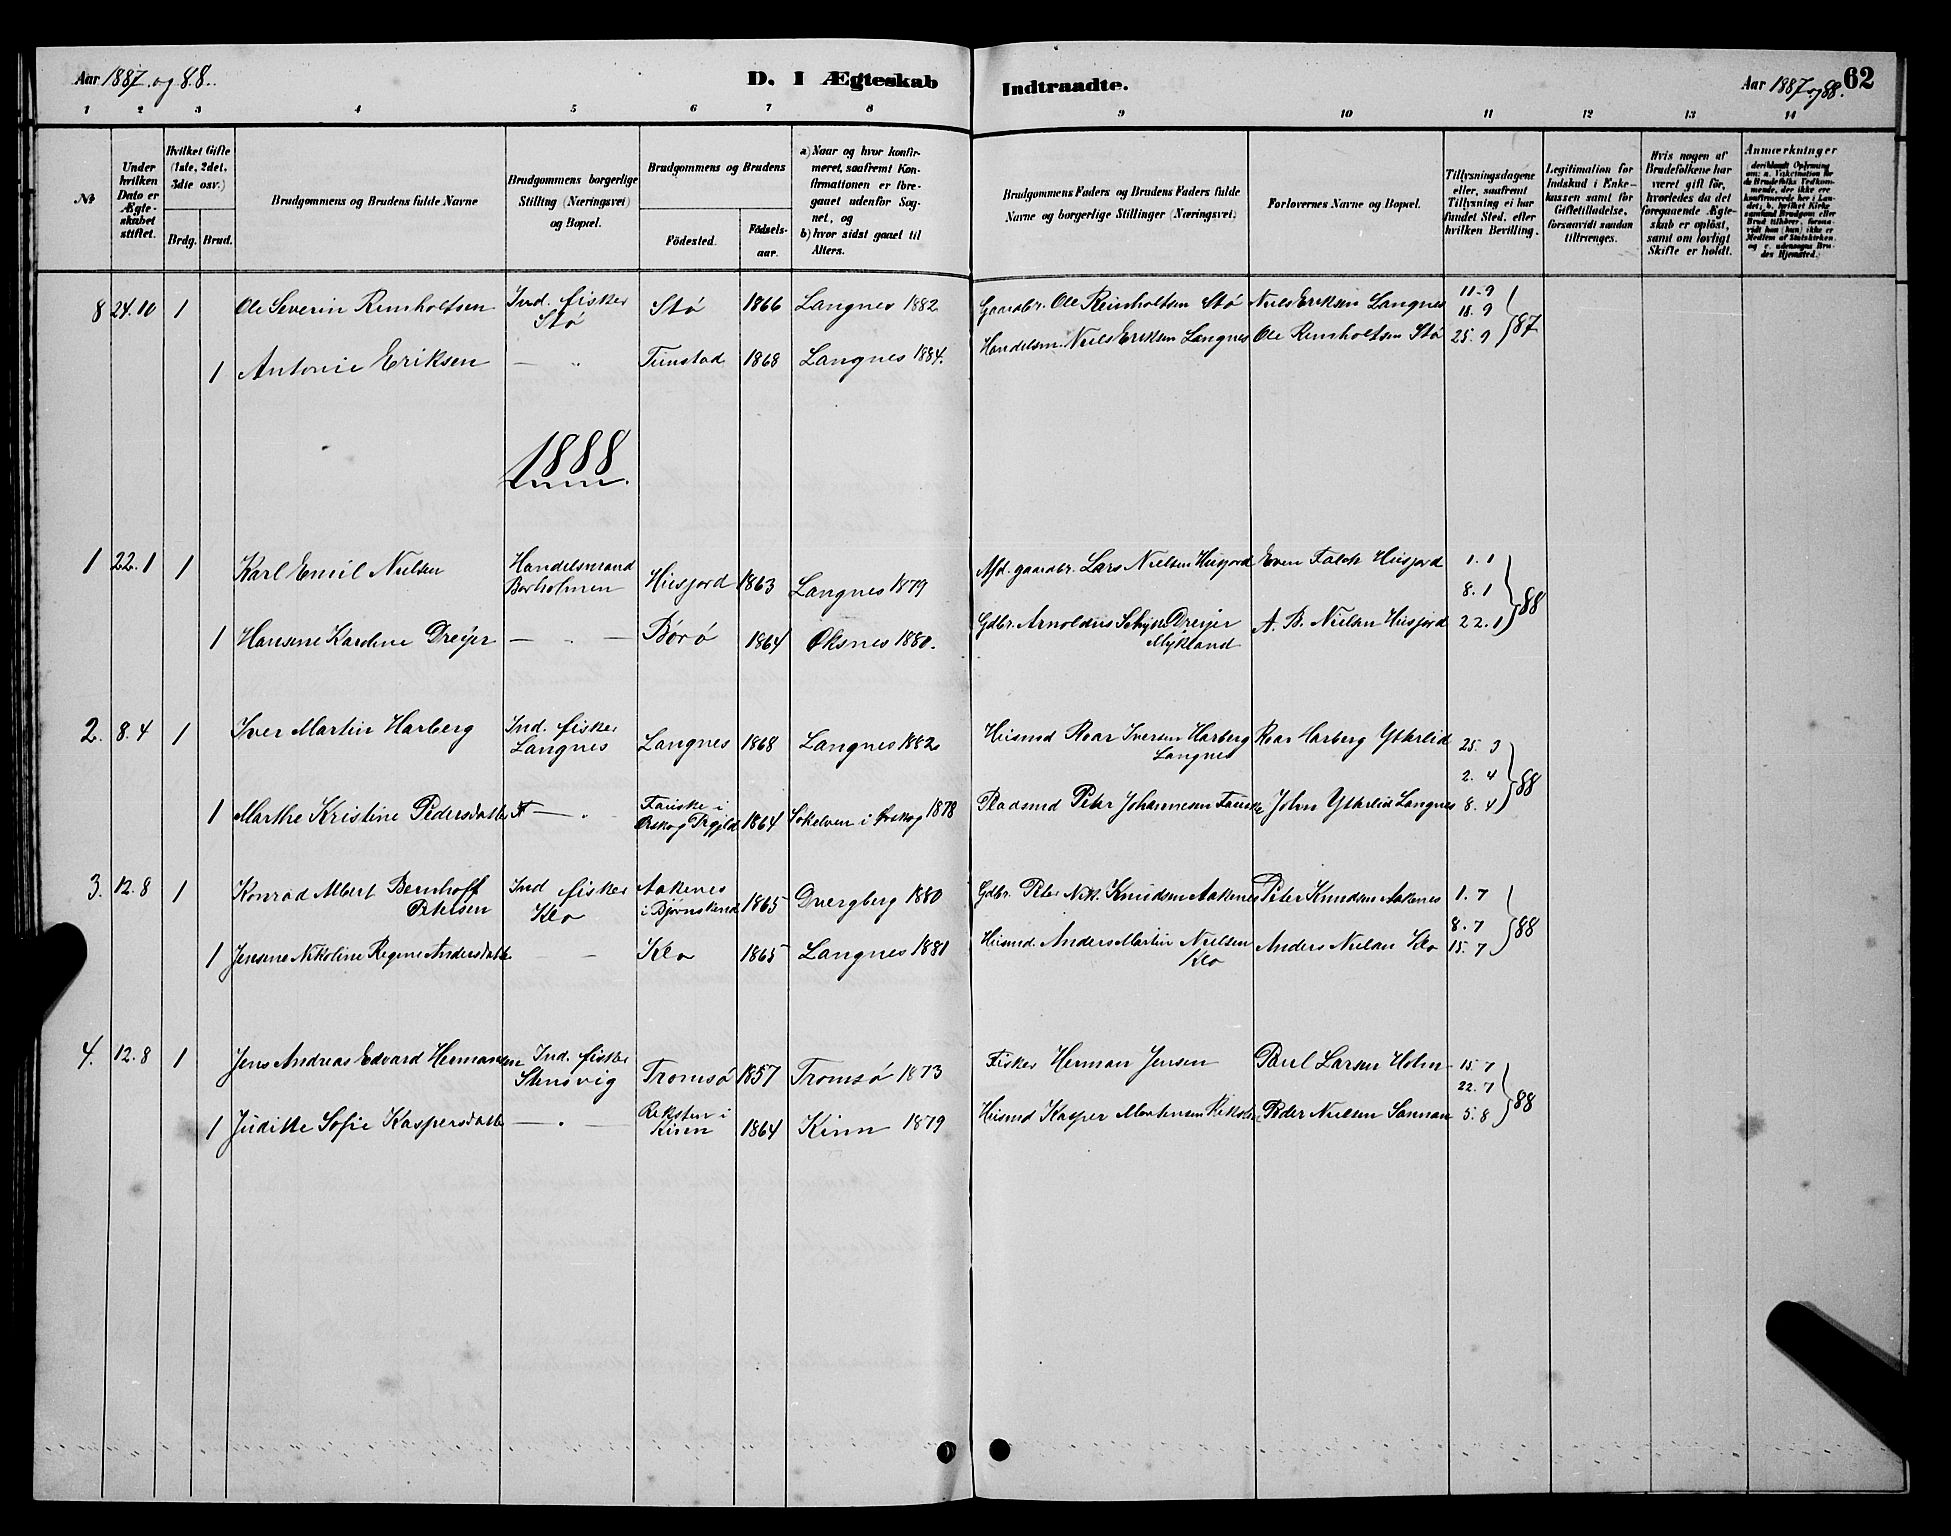 Aar 1887. og 88.
D. I Ægteskab
Indtraadte.
Aar 1887 og 88.
62
1 2 3 4 5 6 7 8 9 10 11 12 13 14
№
Under
hvilken
Dato er
Ægte-
skabet
stiftet.
Hvilket Gifte
(1ste, 2det,
3die osv.)
Brdg. Brud.
Brudgommens og Brudens fulde Navne
Brudgommens borgerlige
Stilling (Næringsvei)
og Bopæl.
Brudgommens og Brudens
Fødested.
Fødsels-
aar.
a) Naar og hvor konfir-
meret, saafremt Kon-
firmationen er fore-
gaaet udenfor Sog-
net, og
b) hvor sidst gaaet til
Alters.
Brudgommens Faders og Brudens Faders fulde
Navne og borgerlige Stillinger (Næringsvei)
Forlovernes Navne og Bopæl.
Tillysningsdagene
eller, saafremt
Tillysning ei har
fundet Sted, efter
hvilken Bevilling.
Legitimation for
Indskud i Enke-
kassen samt for
Giftetilladelse,
forsaavidt saadan
tiltrænges.
Hvis nogen af
Brudefolkene har
været gift før,
hvorledes da det
foregaaende Ægte-
skab er opløst,
samt om lovligt
Skifte er holdt.
Anmærkninger
deriblandt Oplysning
om: a. Vakcination for
de Brudefolks Vedkom-
mende, der ikke ere
konfirmerede her i Lan-
det; b. hvilket Kirke-
samfund Brudgom eller
Brud tilhører, forsaa-
vidt han (hun) ikke er
Medlem af Statskirken,
og c. udensogns Bru-
des Hjemsted.
8 24.10 1 Ole Severin Reinholtsen Ind. fisker Stø Stø 1866 Langnes 1882 Gaardbr. Ole Reinholtsen Stø Niels Eriksen Langnes 11.9
18.9 } 87
1 Antonie Eriksen — „ Tunstad 1868 Langnes 1884. Handelsm. Niels Eriksen Langnes Ole Reinholtsen Stø 25.9
1888
1 22.1 1 Karl Emil Nielsen Handelsmand Borholmen Husjord 1863 Langnes 1879 Afd. gaardbr. Lars Nielsen Husjord Even Falch Husjord 1.1
8.1 } 88
1 Hansine Karoline Dreyer — „ — Børø 1864 Øksnes 1880. Gdbr. Arnoldus Dreyer Mykland A. B. Nielsen Husjord 22.1
2. 8.4 1 Iver Martin Harberg Ind. fisker Langnes Langnes 1868 Langnes 1882 Husmd Roar Iversen Harberg Langnes Roar Harberg Ytterlid 25.3
2.4 } 88
1 Marthe Kristine Pedersdatter — „ Fauske i Ørskog Prgjld 1864 Søkelven i Ørskog 1878 Pladsmd Peter Johannesen Fauske John Ytterlid Langnes 8.4
3. 12.8 1 Konrad Albert Bernhoff Petersen Ind fisker Klo Aakenes i Bjørnskind 1865 Dvergberg 1880 Gdbr. Peter Nik. Knudsen Aakenes Peter Knudsen Aakenes 1.7
8.7 } 88
1 Jensine Nikoline Regine Andersdatter — — Klo 1865 Langnes 1881 Husmd Anders Martin Nielsen Klo Anders Nielsen Klo 15.7
4. 12.8 1 Jens Andreas Edvard Hermansen Ind. fisker Stensvig Tromsø 1857 Tromsø 1873 Fisker Herman Jensen Paul Larsen Holm 15.7
22.7 } 88
1 Judithe Sofie Kaspersdatter — „ — Reksten i Kinn 1864 Kinn 1879 Husmd Kasper Mortensen Reksten Peder Nielsen Sannan 5.8